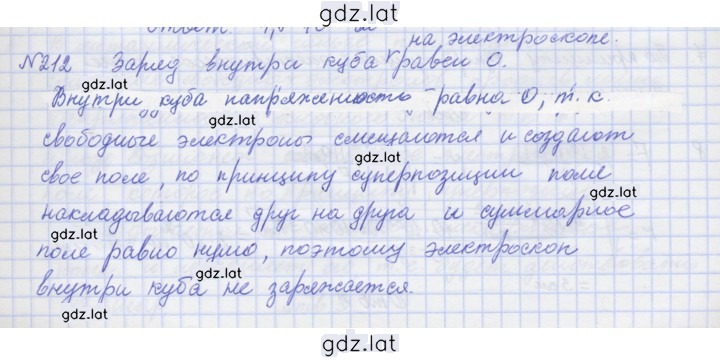 gdz.lat
на электроскопе.
№212 Заряд внутри куба равен 0.
gdz.lat
Внутри куба напряженность равна 0, т.к.
gdz.lat
свободные электроны смещаются и создают
gdz.lat
свое поле, по принципу суперпозиции поле
gdz.lat
накладываются друг на друга и суммарное
gdz.lat
поле равно нулю, поэтому электроскоп
gdz.lat
внутри куба не заряжается.
gdz.lat
gdz.lat